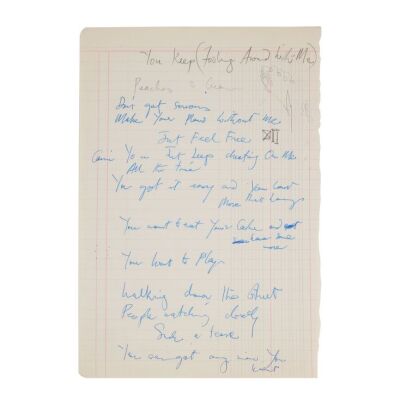 You Keep (Fooling Around With Me)
Peaches & Cream
Don't get serious
Make Your Plans Without Me
Just Feel Free
You Just keep cheating On Me
All the time
You got it easy and You want
More Than
You want to eat Your Cake and
have some
more
You Want to Play
Walking down The Street
People watching closely
Such a tease
You any way You
want